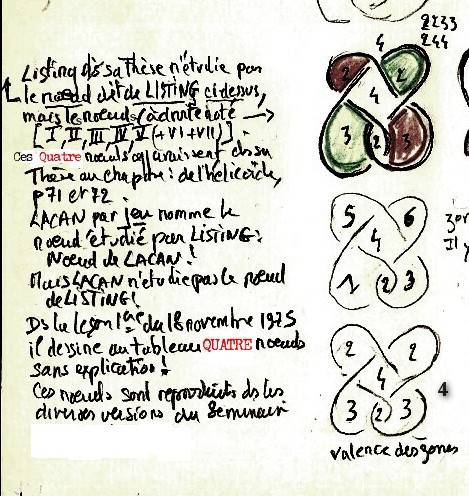 Listing ds sa Thèse n'étudie pas
le nœud dit de LISTING ci-dessus,
mais le nœud à droite noté →
[I, II, III, IV, V (+VI+VII)].
Ces Quatre nœuds apparaissent ds sa
Thèse au chapitre: de l'hélicoïde,
p 71 et 72.
LACAN par jeu nomme le
nœud étudié par LISTING:
Nœud de LACAN!
Mais LACAN n'étudie pas le nœud
de LISTING!
Ds la leçon 1ère du 18 novembre 1975
il dessine au tableau QUATRE nœuds
sans explication!
Ces nœuds sont reproduits ds les
diverses versions du Séminaire
2233
244
4
2 2
4
3 2 3
5 6
4
1 2 3
Il y
2 2
4
3 2 3
4
valence des zones